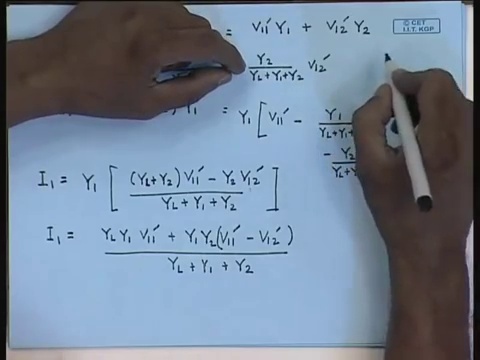 = V₁₁′ Y₁ + V₁₂′ Y₂
© CET
I.I.T. KGP
Y₂ / (Y_L+Y₁+Y₂) V₁₂′
Y₁ = Y₁ [ V₁₁′ − Y₁ / (Y_L+Y₁+
− Y₂ / (Y_L+
I₁ = Y₁ [ ((Y_L+Y₂) V₁₁′ − Y₂ V₁₂′) / (Y_L + Y₁ + Y₂) ]
I₁ = (Y_L Y₁ V₁₁′ + Y₁Y₂ (V₁₁′ − V₁₂′)) / (Y_L + Y₁ + Y₂)